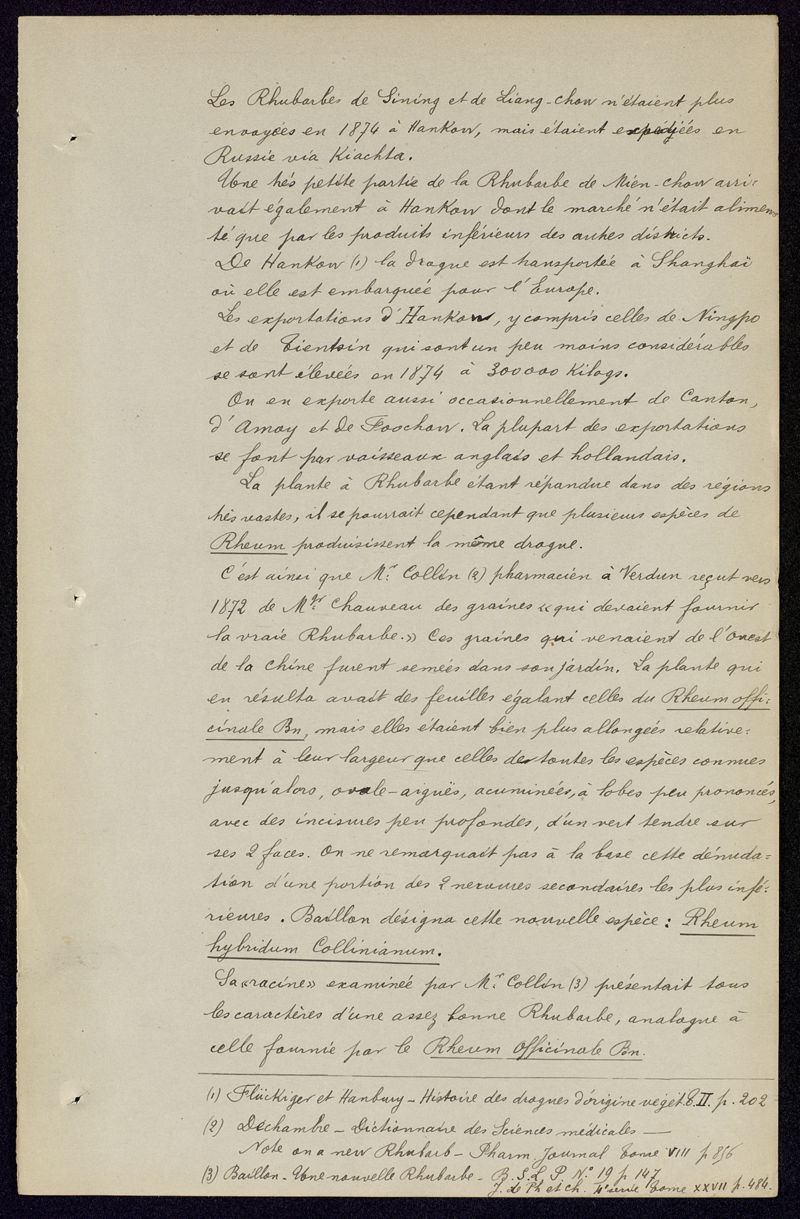 Les Rhubarbes de Sining et de Liang-chow n'étaient plus
envoyées en 1874 à Hankow, mais étaient expédiées en
Russie via Kiachta.
Une très petite partie de la Rhubarbe de Mien-chow arri-
vait également à Hankow dont le marché n'était alimen
té que par les produits inférieurs des autres districts.
De Hankow (1) la drogue est transportée à Shanghaï
où elle est embarquée pour l'Europe.
Les exportations d'Hankow, y compris celles de Ningpo
et de Tientsin qui sont un peu moins considérables
se sont élevées en 1874 à 300000 Kilogs.
On en exporte aussi occasionnellement de Canton,
d'Amoy et de Foochow. La plupart des exportations
se font par vaisseaux anglais et hollandais.
La plante à Rhubarbe étant répandue dans des régions
très vastes, il se pourrait cependant que plusieurs espèces de
Rheum produisissent la même drogue.
C'est ainsi que Mr. Collin (2) pharmacien à Verdun reçut vers
1872 de Mgr. Chauveau des graines « qui devaient fournir
la vraie Rhubarbe.» Ces graines qui venaient de l'Ouest
de la Chine furent semées dans son jardin. La plante qui
en résulta avait des feuilles égalant celles du Rheum offi-
cinale Bn, mais elles étaient bien plus allongées relative-
ment à leur largeur que celles de toutes les espèces connues
jusqu'alors, ovale-aiguës, acuminées, à lobes peu prononcés,
avec des incisures peu profondes, d'un vert tendre sur
ses 2 faces. On ne remarquait pas à la base cette dénuda-
tion d'une portion des 2 nervures secondaires les plus infé-
rieures. Baillon désigna cette nouvelle espèce : Rheum
hybridum Collinianum.
Sa «racine» examinée par Mr. Collin (3) présentait tous
les caractères d'une assez bonne Rhubarbe, analogue à
celle fournie par le Rheum Officinale Bn.
(1) Flückiger et Hanbury - Histoire des drogues d'origine végét. T. II. p. 202
(2) Dechambre - Dictionnaire des Sciences médicales -
Note on a new Rhubarb - Pharm. Journal tome VIII p 856
(3) Baillon - Une nouvelle Rhubarbe - B. S. L. P. N.° 19 p 147
J. de Ph et ch. 4e série tome XXVII p. 484.